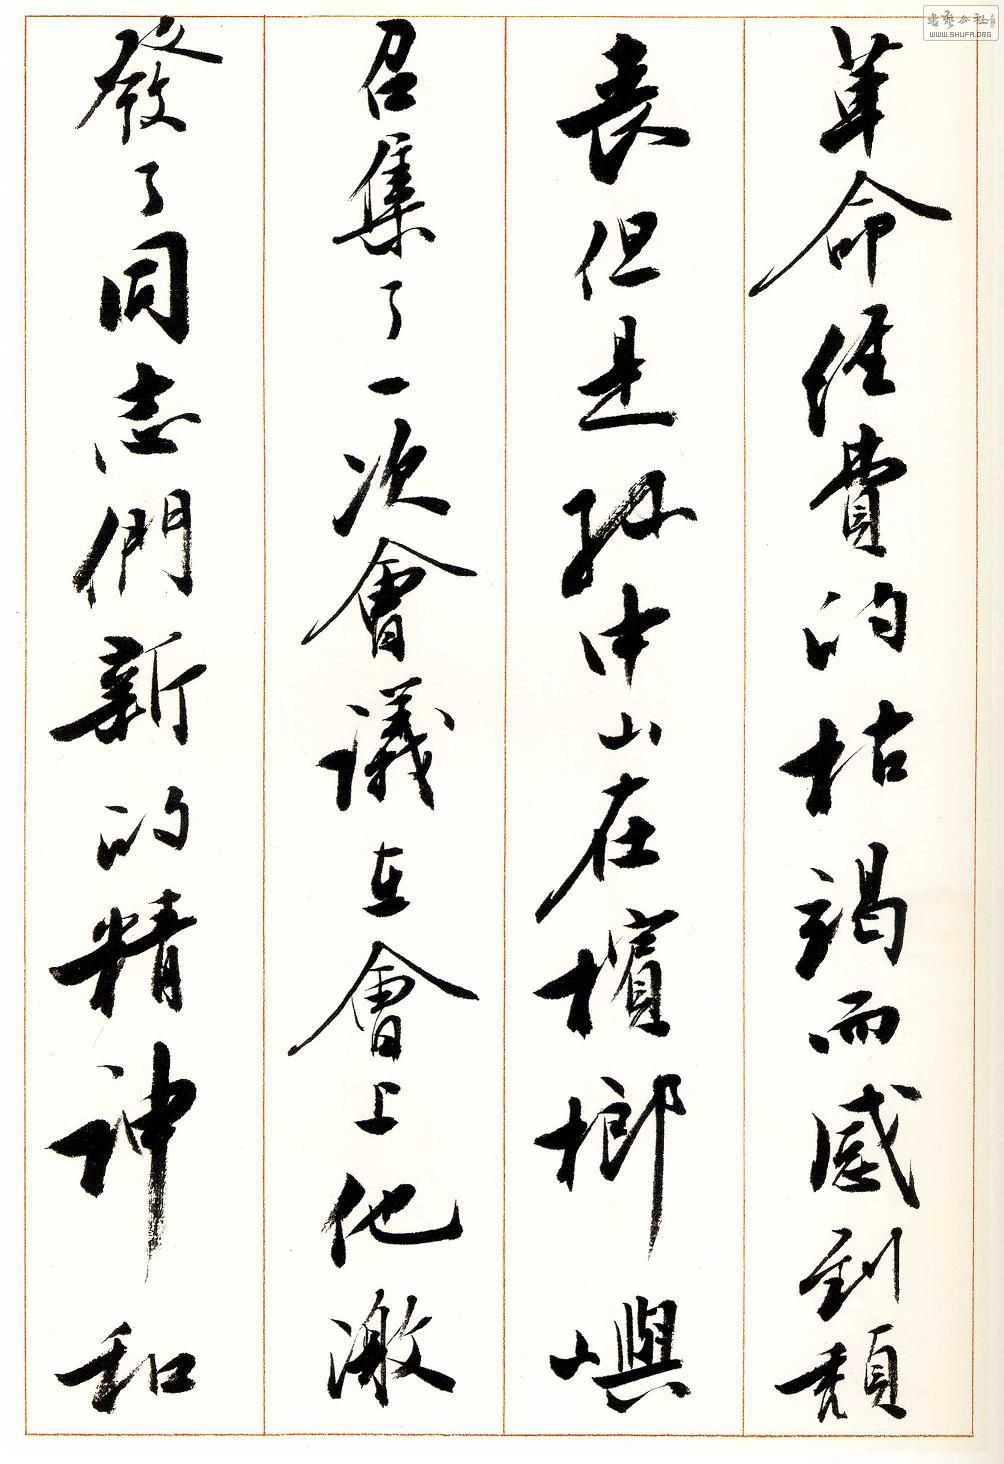 革命經費的枯竭而感到頹
喪但是孫中山在檳榔嶼
召集了一次會議在會上他激
發了同志們新的精神和
書藝公社
WWW.SHUFA.ORG